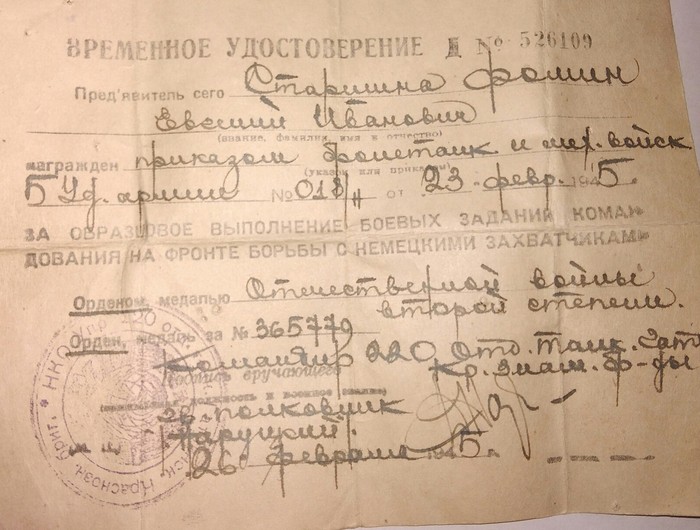 ВРЕМЕННОЕ УДОСТОВЕРЕНИЕ Д № 526109
Пред'явитель сего Старшина Фомин
Евгений Иванович
(звание, фамилия, имя и отчество)
награжден приказом бронетанк и мех. войск
(указом или приказом)
5 Уд. армии № 018/н от 23 февр. 1945.
ЗА ОБРАЗЦОВОЕ ВЫПОЛНЕНИЕ БОЕВЫХ ЗАДАНИЙ КОМАН
ДОВАНИЯ НА ФРОНТЕ БОРЬБЫ С НЕМЕЦКИМИ ЗАХВАТЧИКАМИ
Орденом, медалью Отечественной войны
второй степени.
Орден, медаль за № 365779
Командир 220 Отд. танк. Гат
Кр. знам. бр-ды
Подпись вручающего
гв. полковник
Наруцкий.
26 февраля 1945 г.
НКО Упр. 220 отд.
Краснозн. бриг.